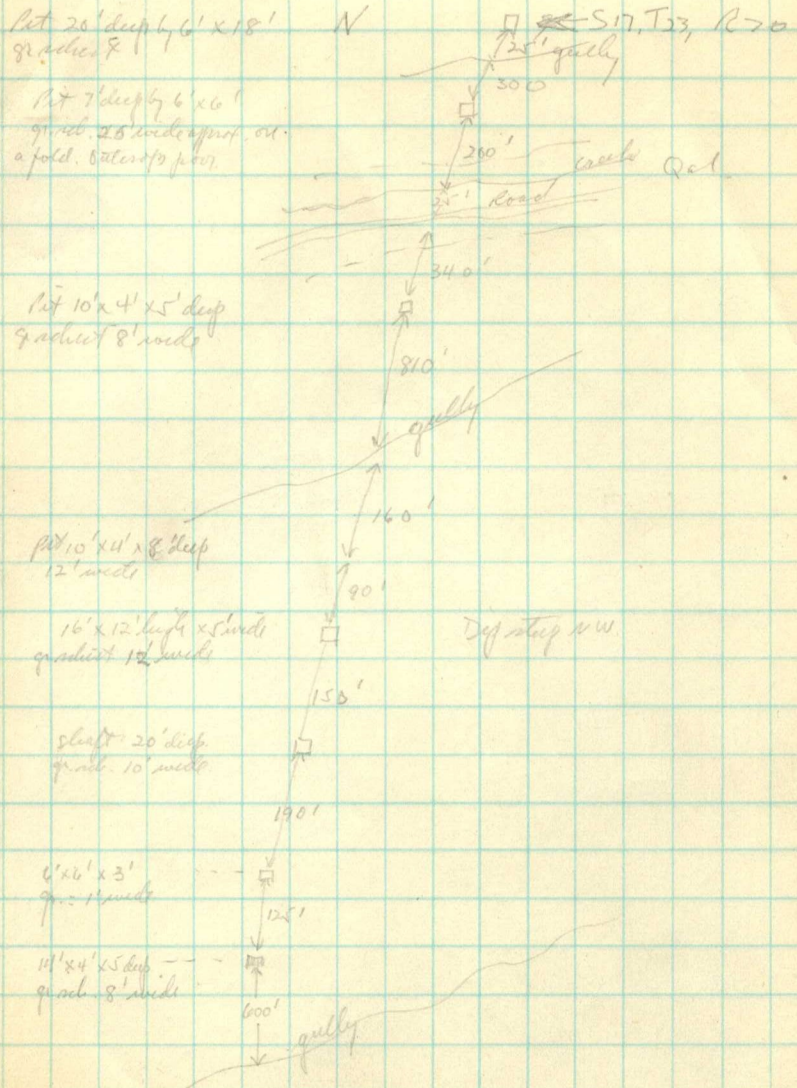 Pit 20' deep by 6' x 18'
gr schist
N
S17, T23, R20
125'
gully
300
Pit 7' deep by 6' x 6'
gr. sch. 20' wide approx. on
a fold. Outcrops poor
200'
creek
Qal.
25'
Road
340'
Pit 10' x 4' x 5' deep
gr schist 8' wide
810'
gully
160'
Pit 10' x 4' x 8' deep
12' wide
90'
16' x 12' high x 5' wide
gr schist 12' wide
Dip steep NW.
150'
shaft 20' deep
gr sch. 10' wide
190'
6' x 6' x 3'
gr. = 1' wide
125'
x 4' x 5 deep
gr sch. 8' wide
600'
gully